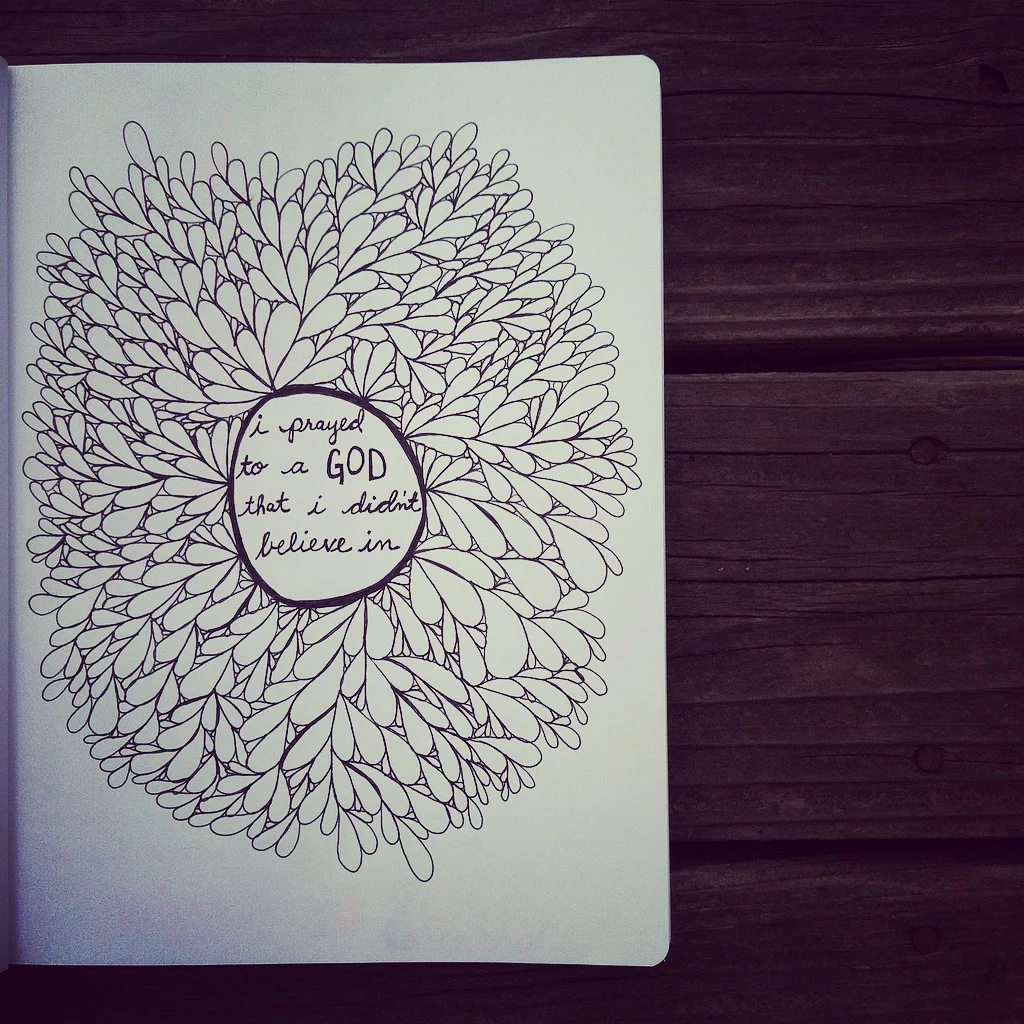 i prayed
to a GOD
that i didn't
believe in